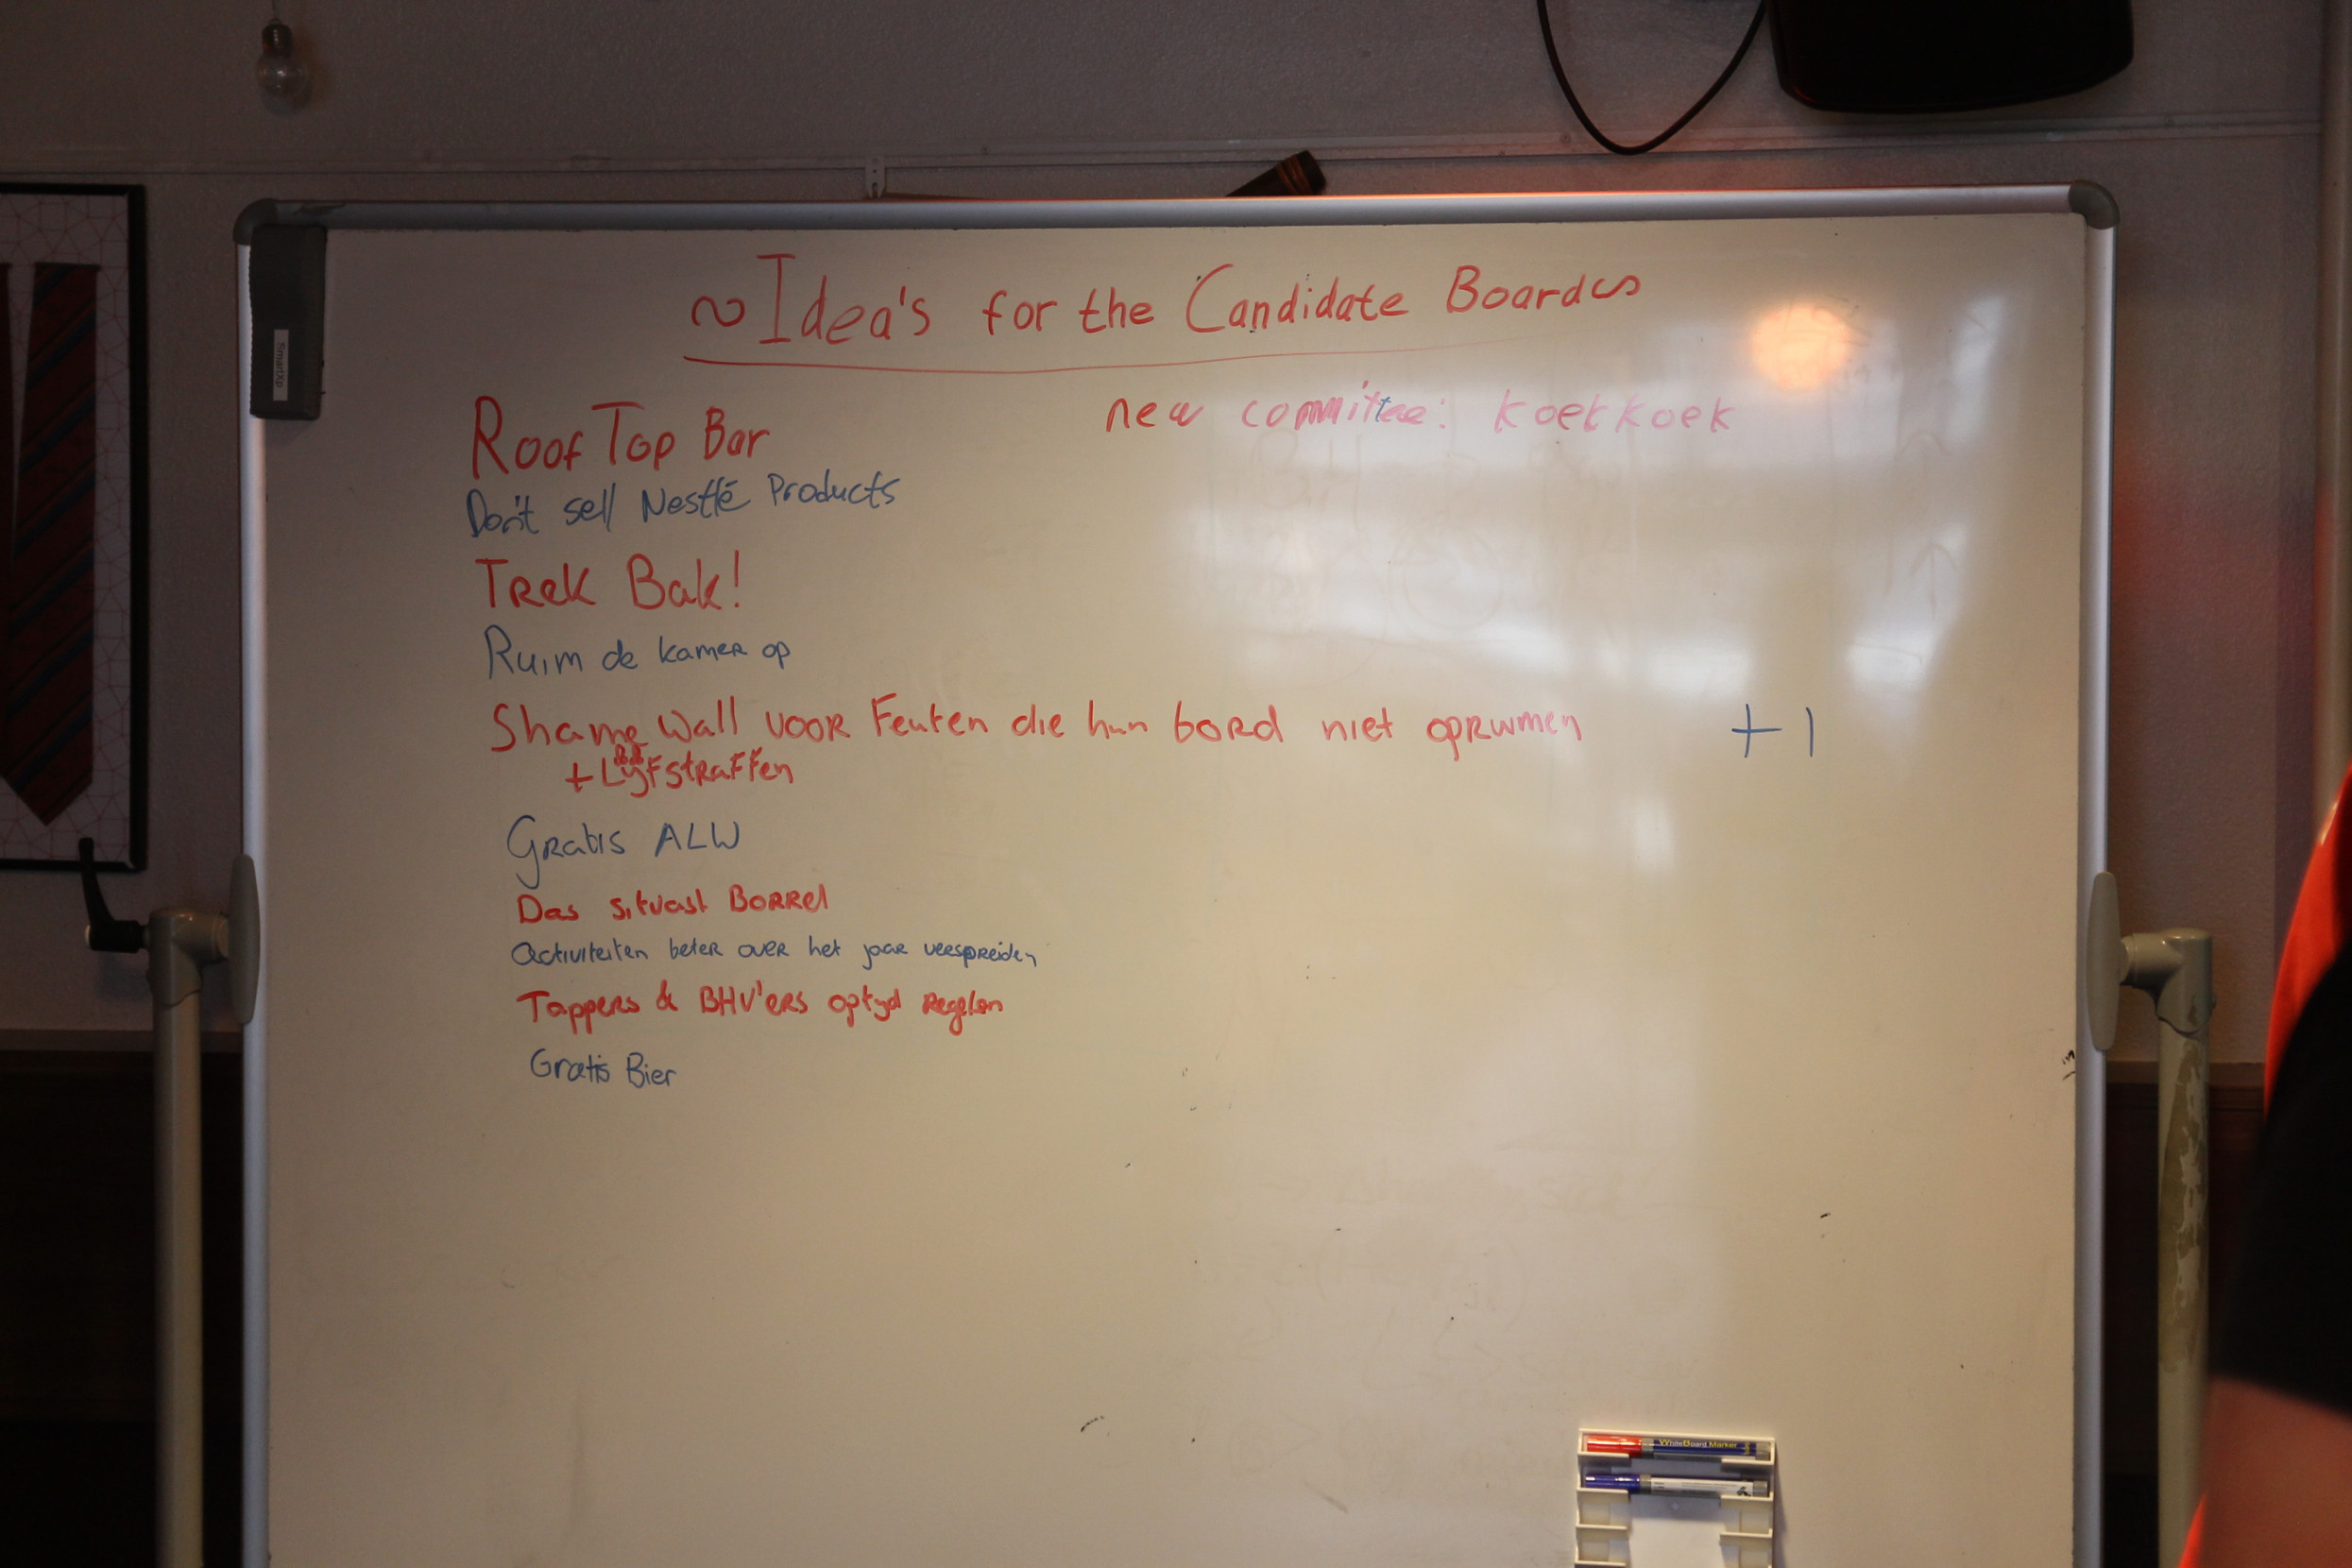 ~Idea's for the Candidate Board~
Roof Top Bar
new committee: koekkoek
Don't sell Nestlé Products
Trek Bak!
Ruim de kamer op
Shame Wall voor Feuten die hun bord niet opruimen +1
+ Lijfstraffen
Gratis ALW
Das situast Borrel
Activiteiten beter over het jaar verspreiden
Tappers & BHV'ers optijd Regelen
Gratis Bier
SmartXp
WhiteBoard Marker